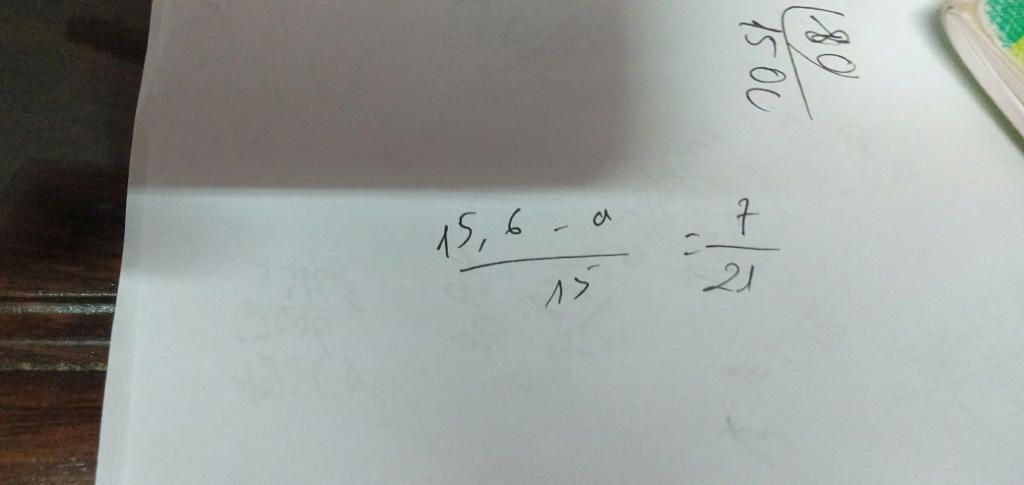 180
150
15,6 - a = 7
15 21